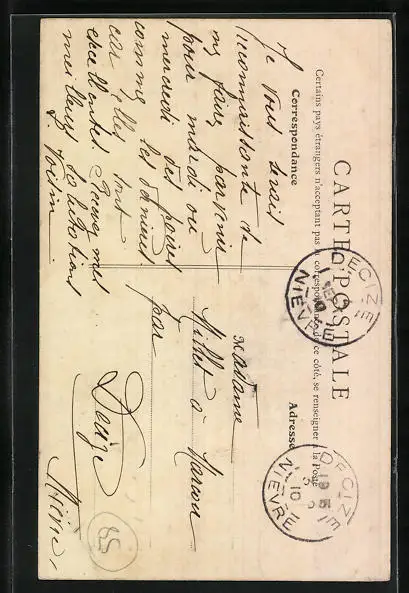 CARTE POSTALE
Certains pays étrangers n'acceptant pas la correspondance de ce côté, se renseigner à la Poste
Correspondance
Adresse
Je vous serais
reconnaissante de
me faire parvenir
pour mardi ou
mercredi des poires
comme le panier
car elles sont
excellentes. Recevez mes
meilleures salutations
Voisin
Madame
Millet à
par
Decize
Nièvre
DECIZE
NIÈVRE
DECIZE
NIÈVRE
85